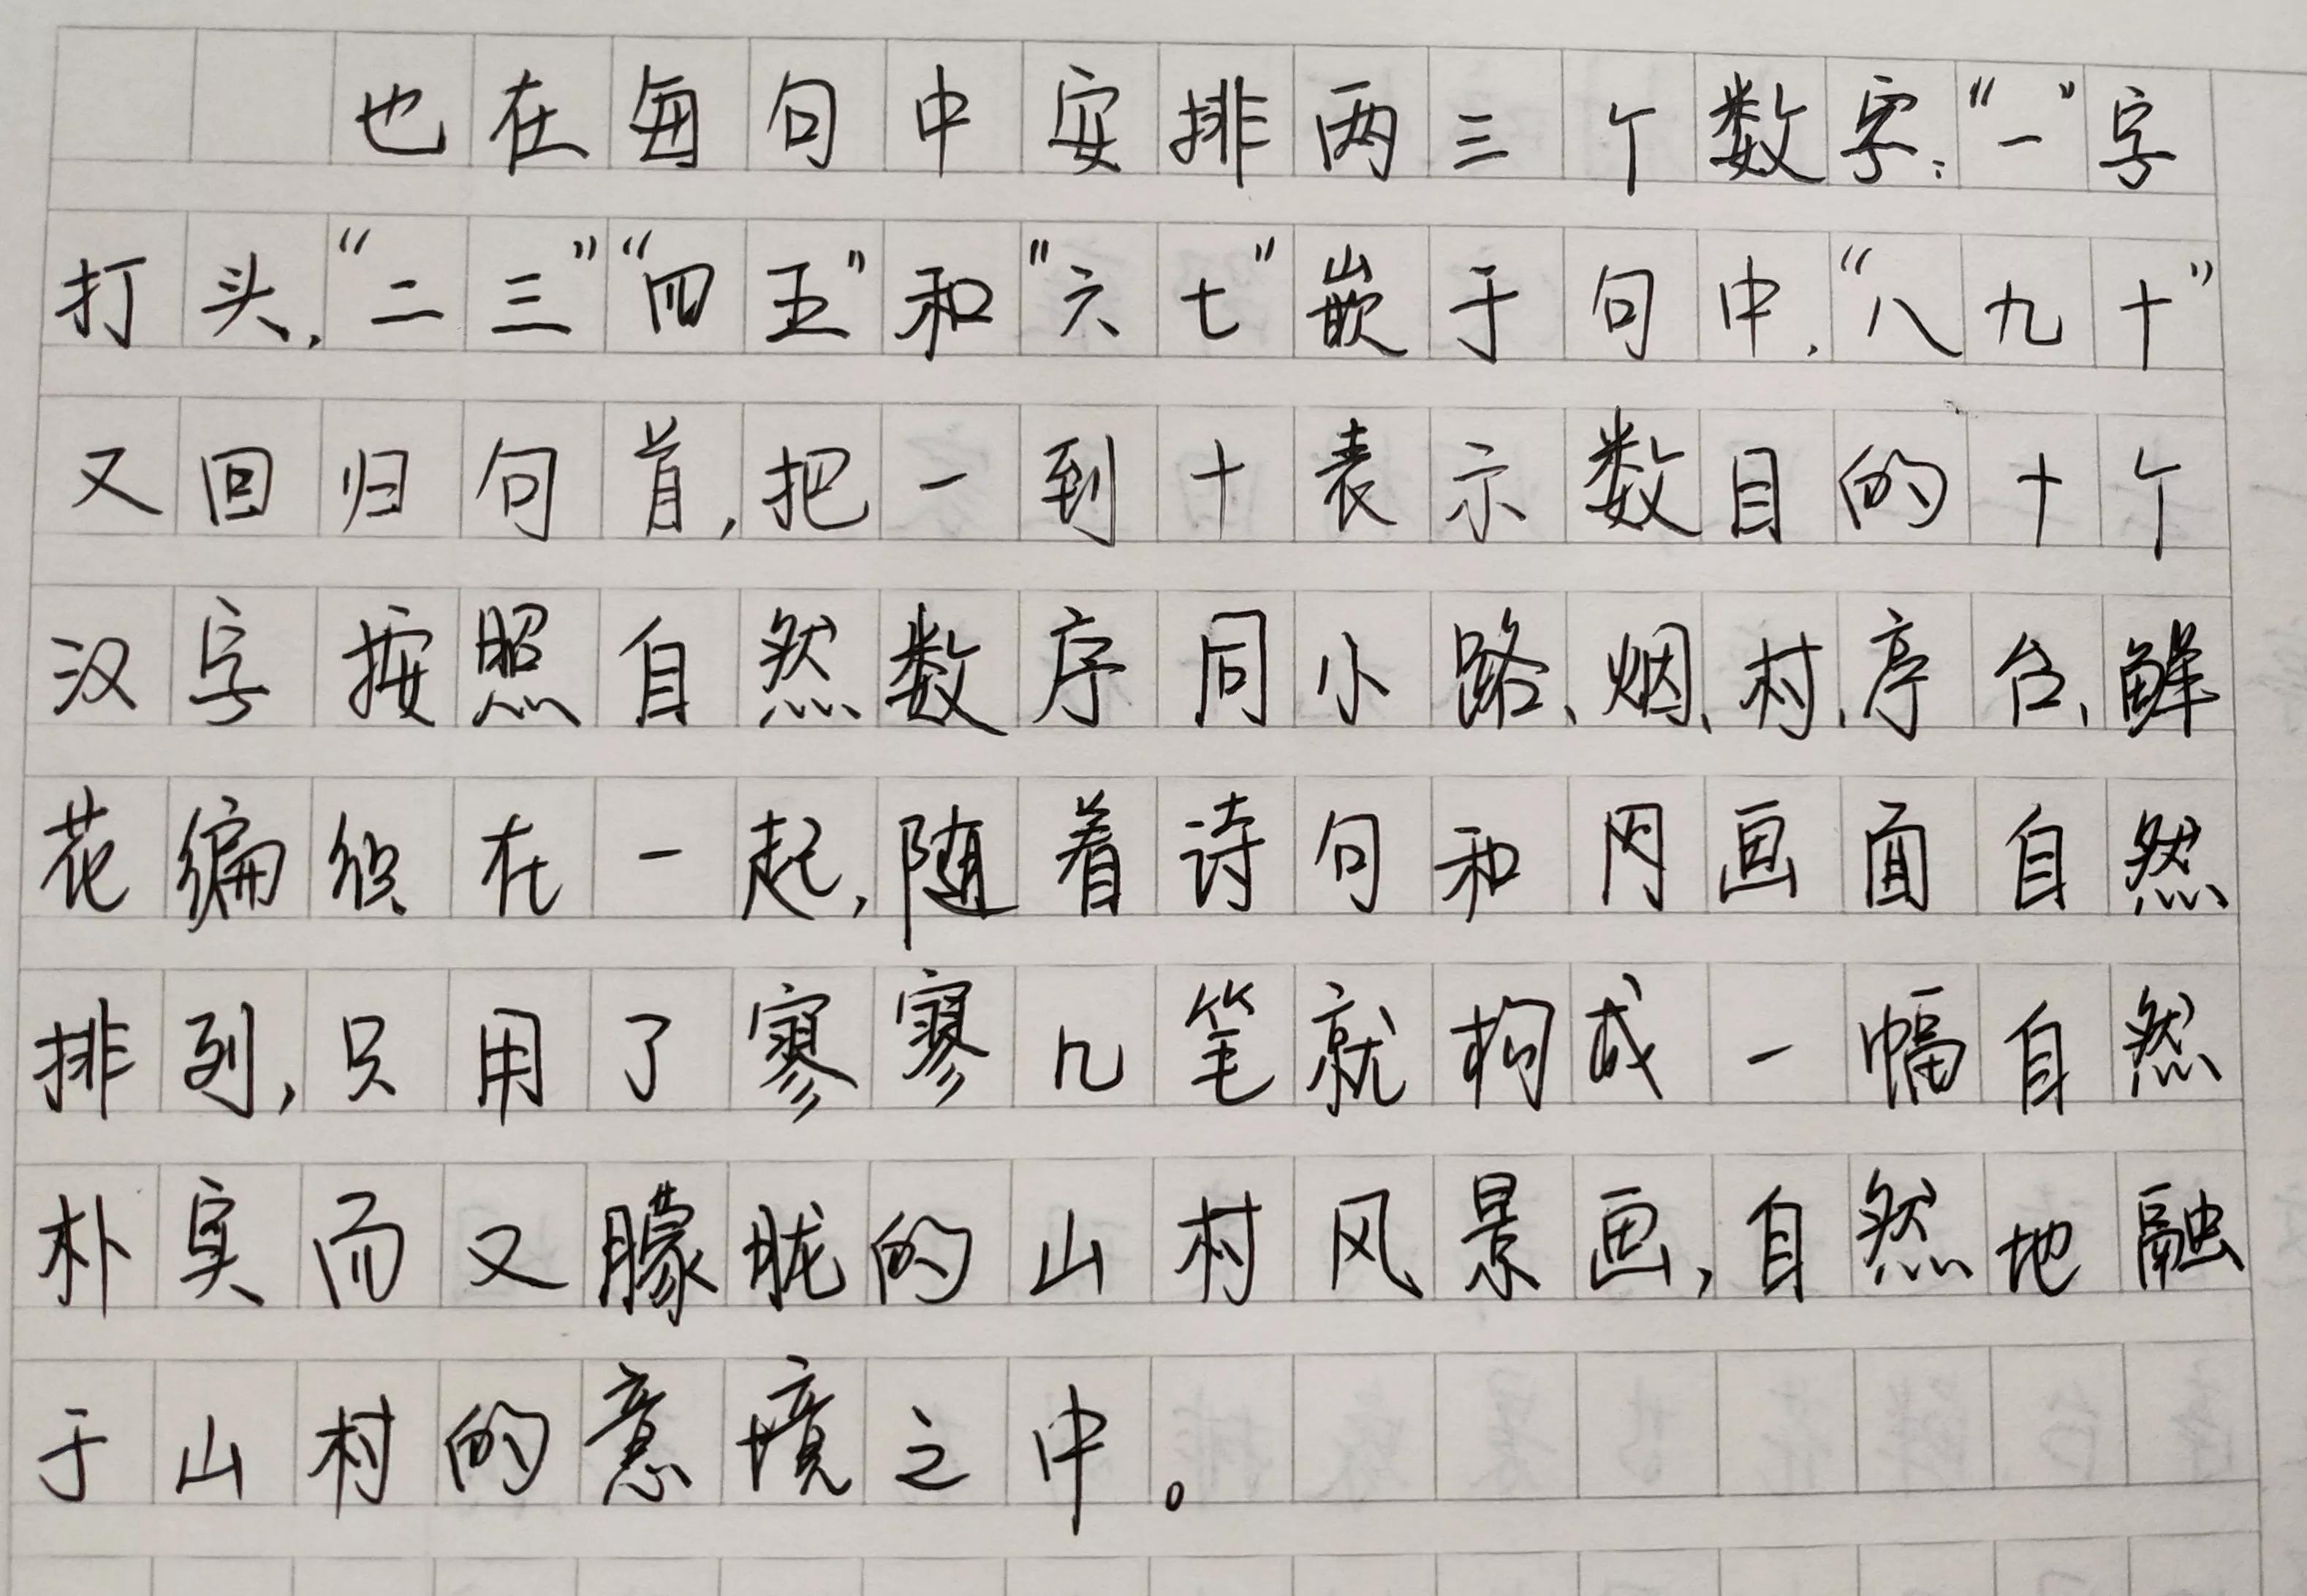 也在每句中安排两三个数字:“一”字
打头,“二三”“四五”和“六七”嵌于句中,“八九十”
又回归句首,把一到十表示数目的十个
汉字按照自然数序同小路、烟、村、亭台、鲜
花编织在一起,随着诗句和内画面自然
排列,只用了寥寥几笔就构成一幅自然
朴实而又朦胧的山村风景画,自然地融
于山村的意境之中。